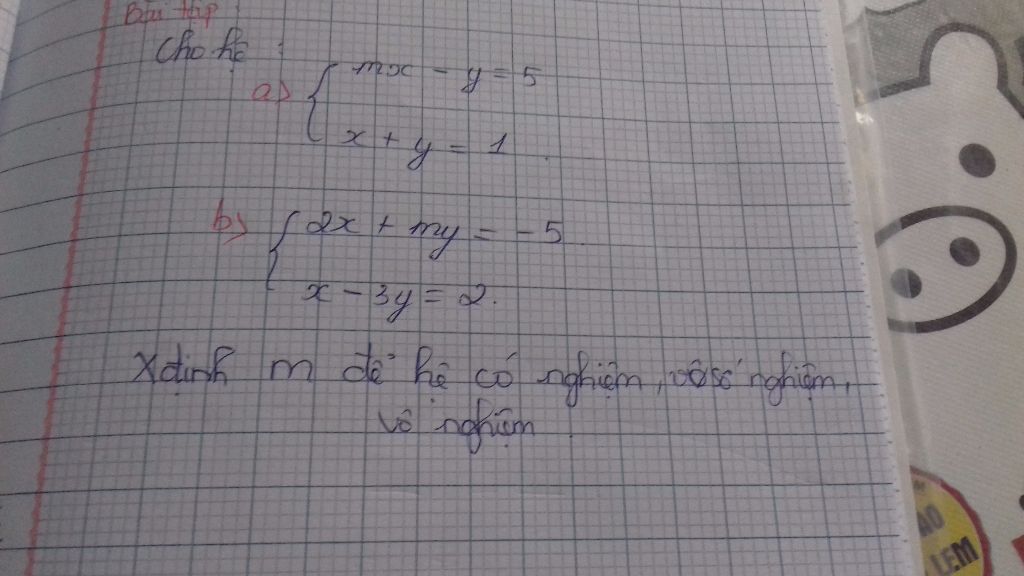 Bài tập
Cho hệ :
a) { mx - y = 5
x + y = 1.
b) { 2x + my = -5
x - 3y = 2.
Xđịnh m để hệ có nghiệm, vô số nghiệm,
vô nghiệm
LEM